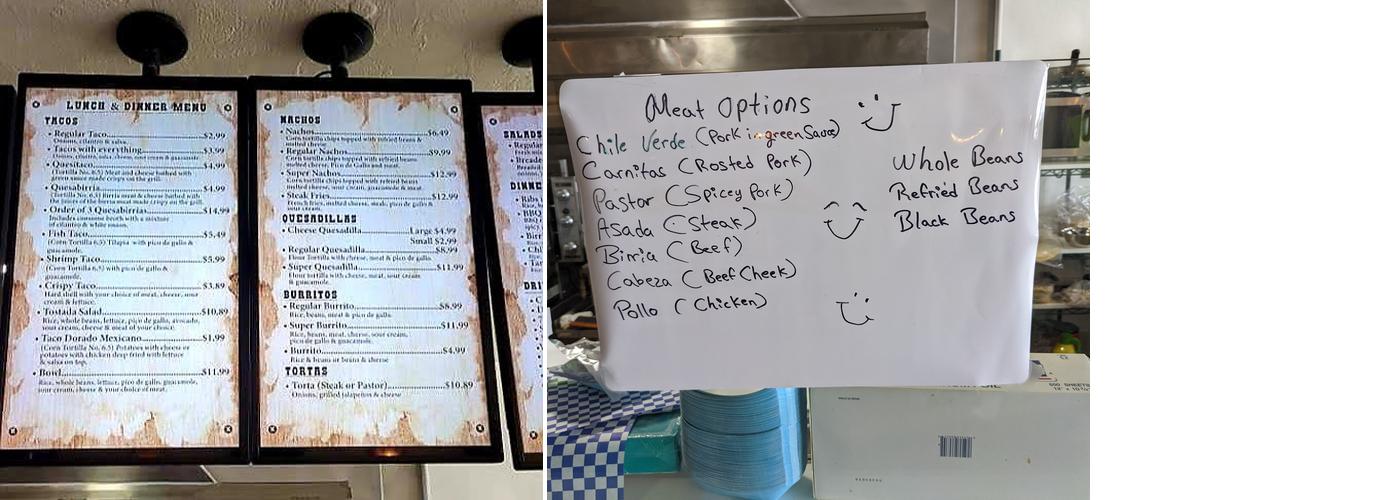 LUNCH & DINNER MENU
TACOS
• Regular Taco...$2.99
Onions, cilantro & salsa.
• Tacos with everything...$3.99
Onions, cilantro, salsa, cheese, sour cream & guacamole.
• Quesitaco...$4.99
(Tortilla No. 6.5) Meat and cheese bathed with
green sauce made crispy on the grill.
• Quesabirria...$4.99
(Tortilla No. 6.5) Birria meat & cheese bathed with
the juices of the birria meat made crispy on the grill.
• Order of 3 Quesabirrias...$14.99
Includes consome broth with a mixture
of cilantro & white onion.
• Fish Taco...$5.49
(Corn Tortilla 6.5) Tilapia with pico de gallo &
guacamole.
• Shrimp Taco...$5.99
(Corn Tortilla 6.5) with pico de gallo &
guacamole.
• Crispy Taco...$3.89
Hard shell with your choice of meat, cheese, sour
cream & lettuce.
• Tostada Salad...$10.89
Rice, whole beans, lettuce, pico de gallo, avocado,
sour cream, cheese & meat of your choice.
• Taco Dorado Mexicano...$1.99
(Corn Tortilla No. 6.5) Potatoes with cheese or
potatoes with chicken deep fried with lettuce
& salsa on top.
• Bowl...$11.99
Rice, whole beans, lettuce, pico de gallo, guacamole,
sour cream, cheese & your choice of meat.
NACHOS
• Nachos...$6.49
Corn tortilla chips topped with refried beans &
melted cheese.
• Regular Nachos...$9.99
Corn tortilla chips topped with refried beans,
melted cheese, Pico de Gallo and meat.
• Super Nachos...$12.99
Corn tortilla chips topped with refried beans,
melted cheese, sour cream, guacamole & meat.
• Steak Fries...$12.99
French fries, melted cheese, steak, pico de gallo &
sour cream.
QUESADILLAS
• Cheese Quesadilla...Large $4.99
Small $2.99
• Regular Quesadilla...$8.99
Flour Tortilla with cheese, meat & pico de gallo.
• Super Quesadilla...$11.99
Flour tortilla with cheese, meat, sour cream
& guacamole.
BURRITOS
• Regular Burrito...$8.99
Rice, beans, meat & pico de gallo.
• Super Burrito...$11.99
Rice, beans, meat, cheese, sour cream,
pico de gallo & guacamole.
• Burrito...$4.99
Rice & beans or beans & cheese
TORTAS
• Torta (Steak or Pastor)...$10.89
Onions, grilled jalapeños & cheese
SALADS
• Regular
DINNE
Meat Options
Chile Verde (Pork in green Sauce)
Carnitas (Rosted Pork)
Pastor (Spicey Pork)
Asada (Steak)
Birria (Beef)
Cabeza (Beef Cheek)
Pollo (Chicken)
Whole Beans
Refried Beans
Black Beans